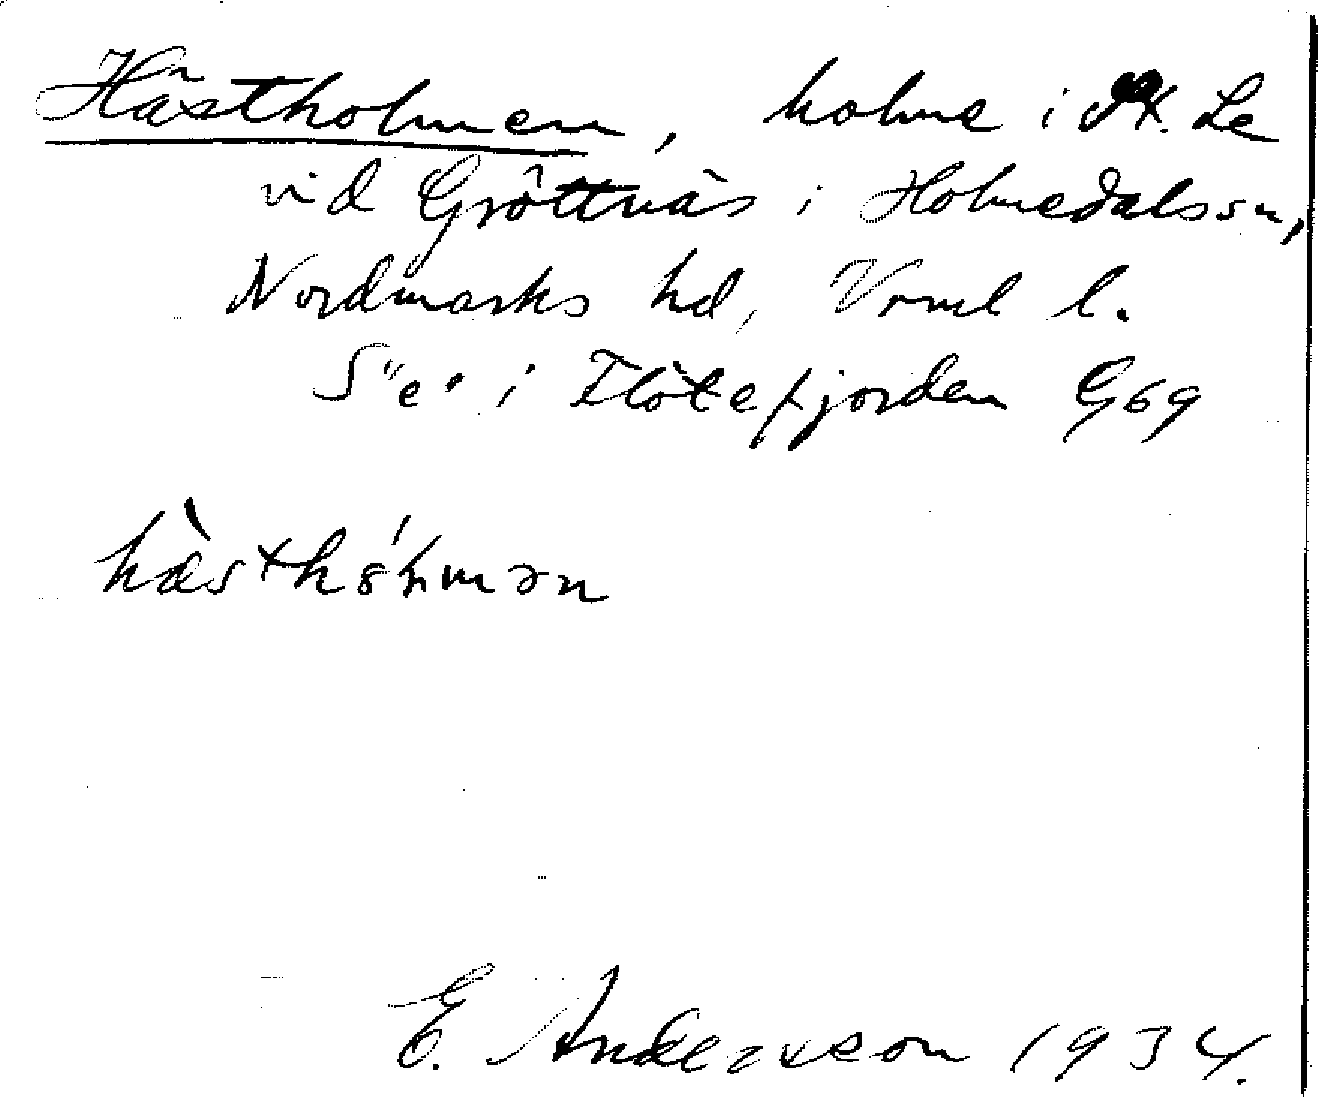 Hästholmen, holme i St. Le
vid Gröttnäs i Holmedals sn,
Nordmarks hd, Vrml l.
S "e" i Flötefjorden G69
hæstholmən
E. Andersson 1934.